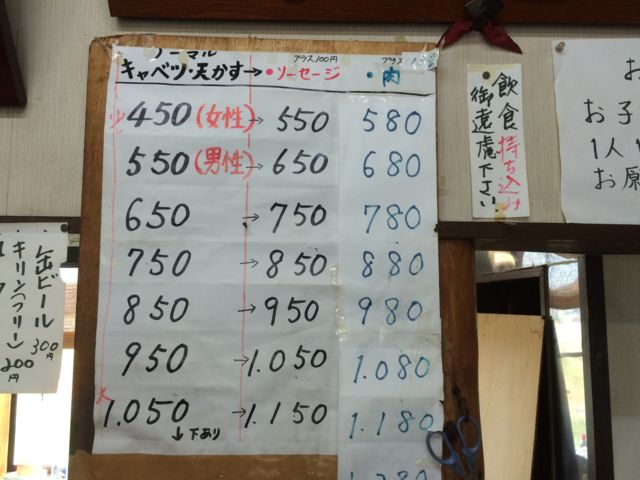 ノーマル
キャベツ・天かす→ ・ソーセージ ・肉
プラス100円 プラス
450 (女性) → 550 580
550 (男性) → 650 680
650 → 750 780
750 → 850 880
850 → 950 980
950 → 1.050 1.080
1.050 → 1.150 1.180
↓下あり
飲食持ち込み
御遠慮下さい
お子
1人1
お原
缶ビール 300円
キリン(フリー) 200円